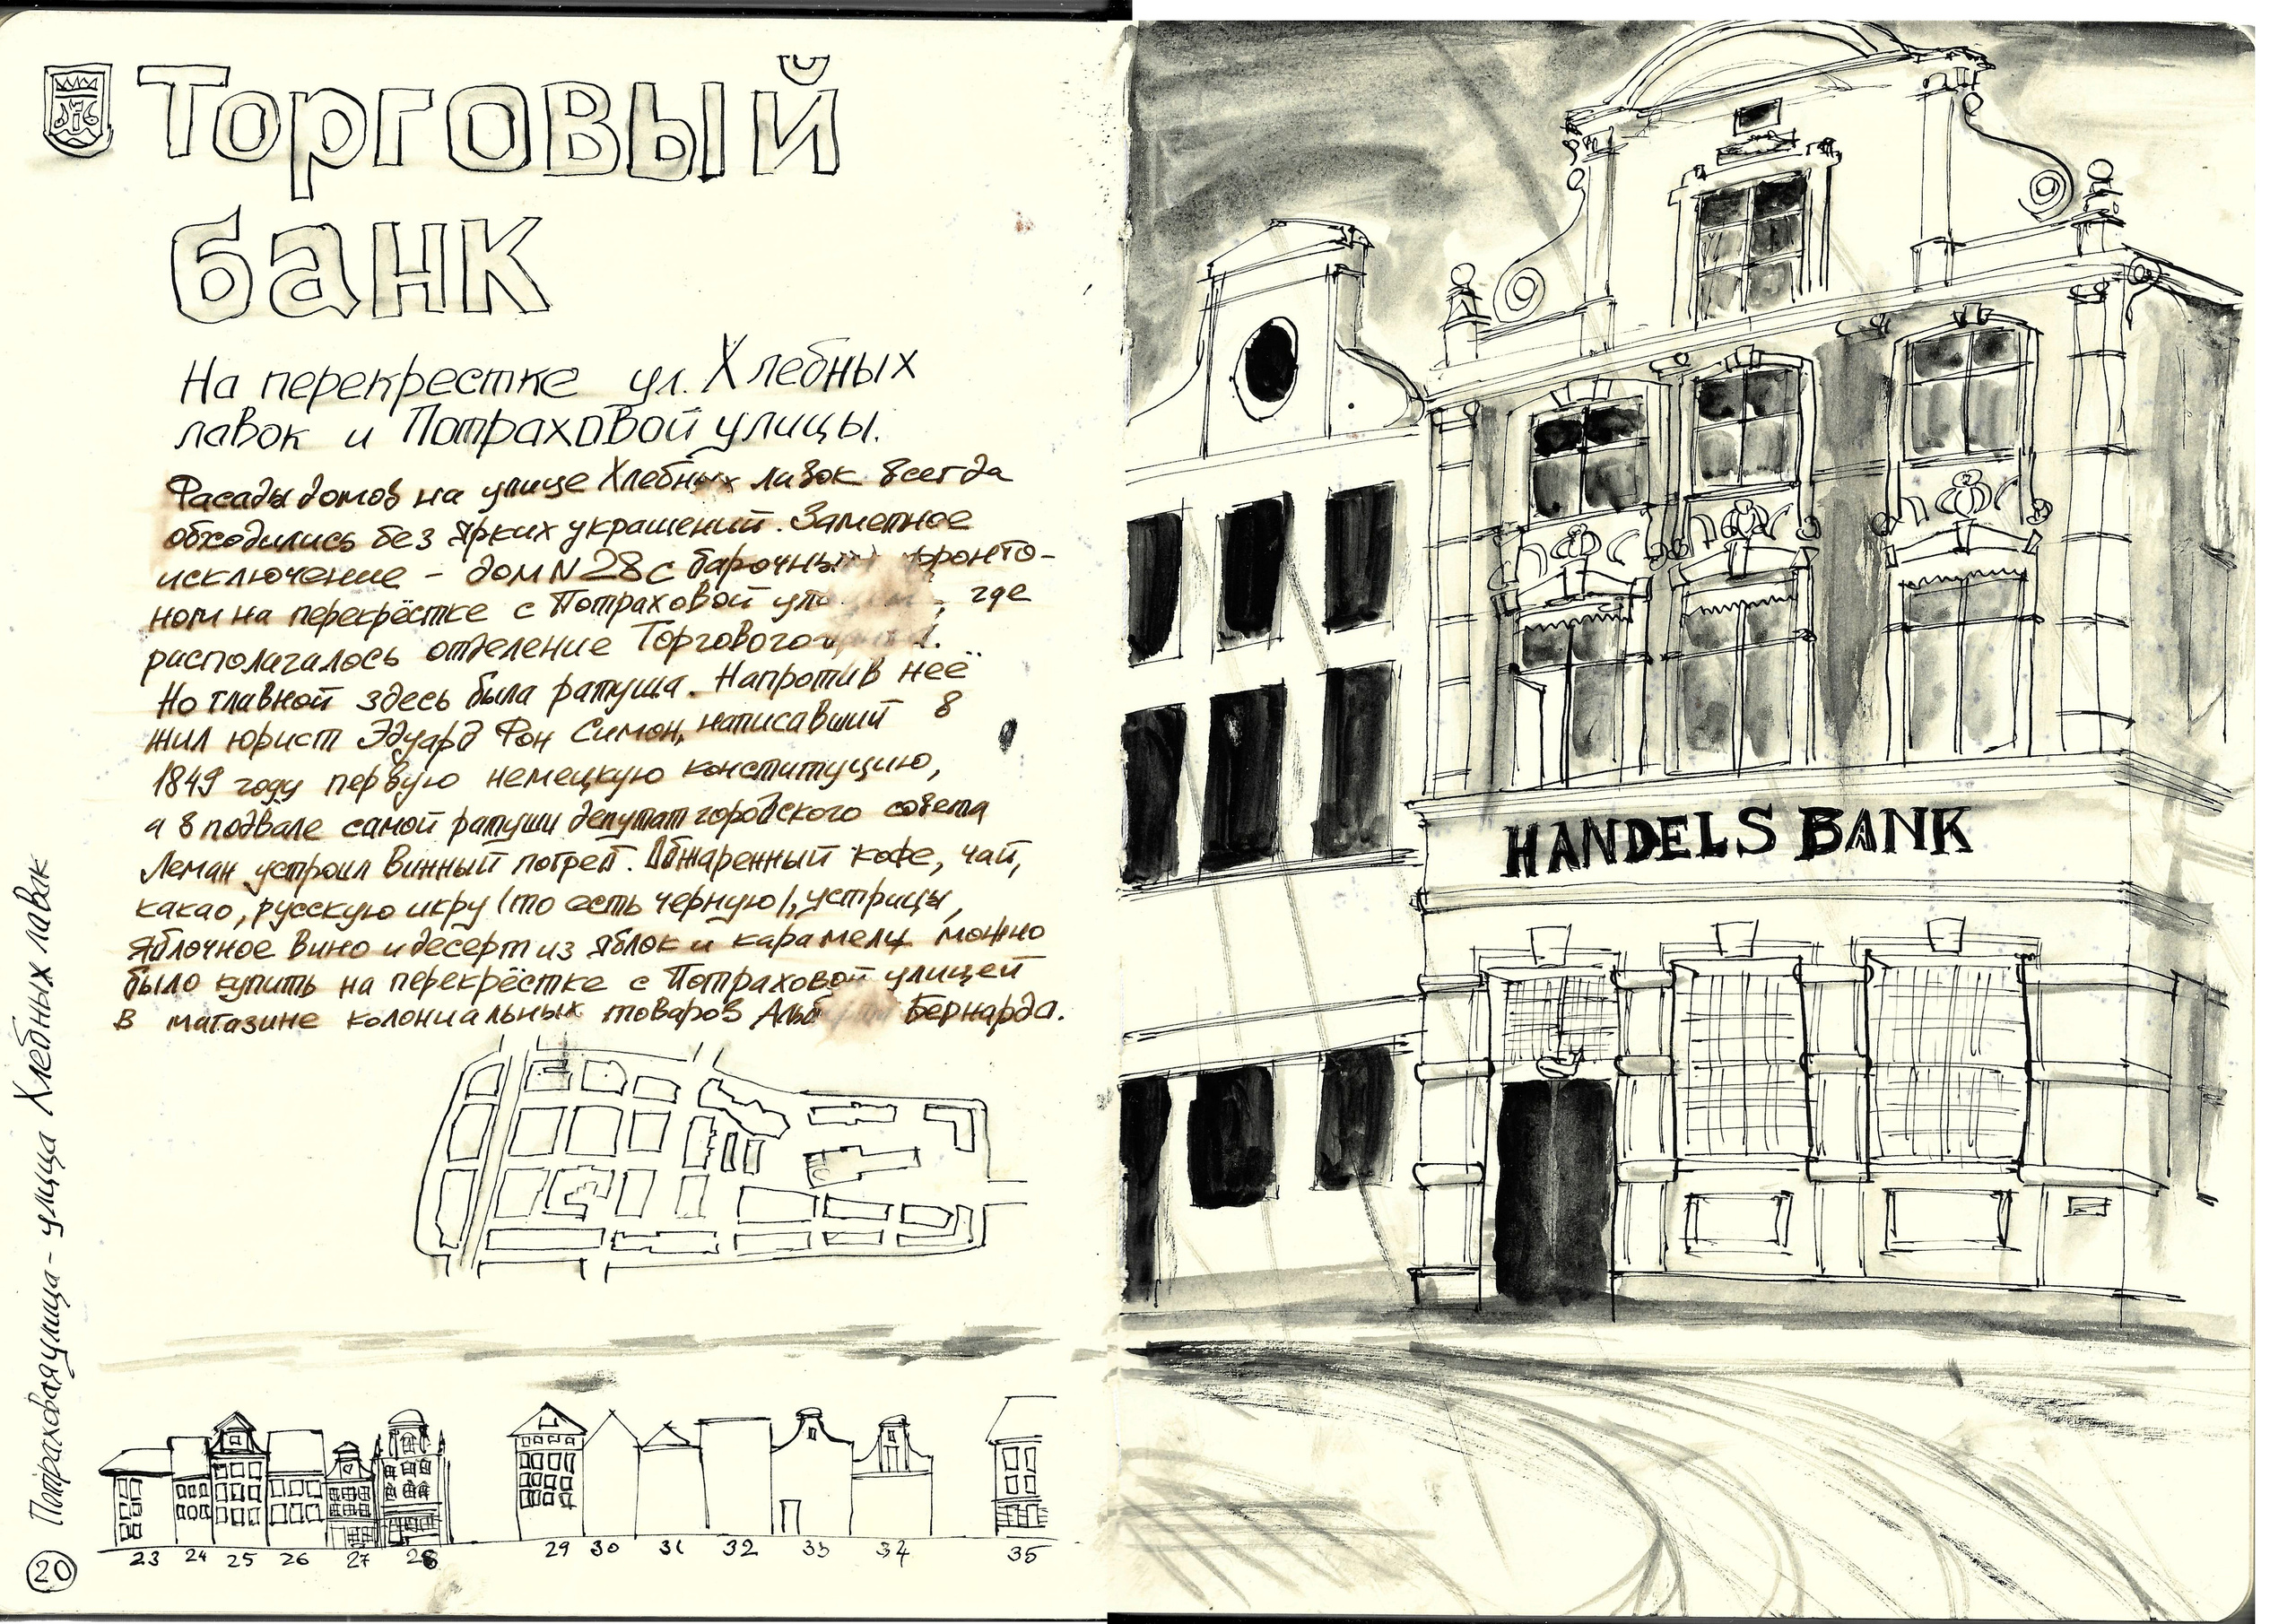 Торговый
банк
На перекрестке ул. Хлебных
лавок и Потраховой улицы.
Фасады домов на улице Хлебных лавок всегда
обходились без ярких украшений. Заметное
исключение - дом N 28 с барочным фронто-
ном на перекрёстке с Потраховой где
располагалось отделение Торгового
Но главной здесь была ратуша. Напротив неё
жил юрист Эдуард Фон Симон, написавший в
1849 году первую немецкую конституцию,
а в подвале самой ратуши депутат городского совета
Леман устроил винный погреб. Обжаренный кофе, чай,
какао, русскую икру (то есть черную), устрицы,
яблочное вино и десерт из яблок и карамели можно
было купить на перекрёстке с Потраховой улицей
в магазине колониальных товаров Бернарда.
Потраховая улица - улица Хлебных лавок
20
23 24 25 26 27 28 29 30 31 32 33 34 35
HANDELS BANK